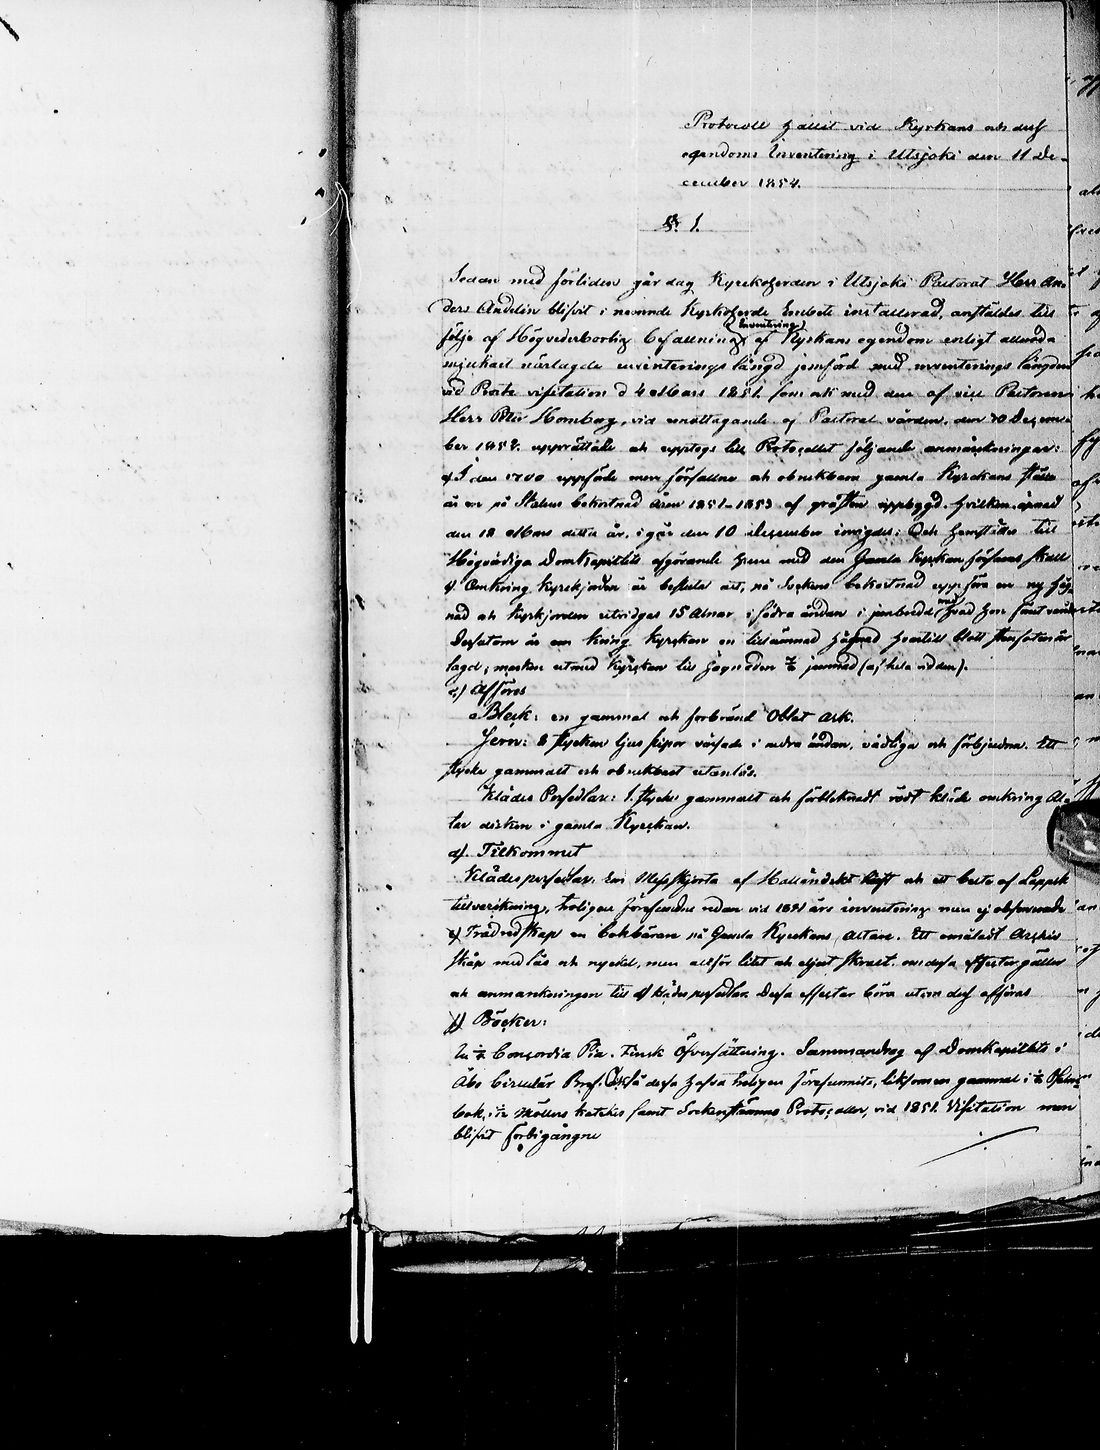 Protocoll hållit vid Kyrkans och dess
egendoms Inventering i Utsjoki den 11 De-
cember 1854.
§. 1.
Sedan med förliden går dag Kyrkoherden i Utsjoki Pastorat Herr An-
ders Andelin blifvit i nemnde Kyrkoherde Embete installerad, anstäldes till
följe af Högvederborlig befallning (Inventering) af Kyrkans egendom enligt
närlagde inventerings längd jemförd med inventerings längden
vid Prosts visitation d 4 Mars 1851. som ock med den af vice Pastoren
Herr Holmberg, vid emottagande af Pastorat vården, den 20 Decem-
ber 1852. upprättade och upptogs till Protocollet följande anmärkningar:
I den 1700 uppförde men förfallne och obrukbara gamla Kyrkans ställe
är en på Statens bekostnad åren 1851-1853 af gråsten uppbygd. hvilken
den 18 Mars detta år, i går den 10 December invigdes; Och hemställes till
Högvördiga Domkapitlets afgörande huru med den Gamla kyrkan förfaras skall
Omkring Kyrkjorden är beslutit att, på Sockens bekostnad uppföra en ny häg-
nad och Kyrkjorden utvidgas 15 Alnar i södra ändan i jembredd med
Dessutom är om kring Kyrkan en tillämnad hägnad hvartill blott stenfoten är
lagd; marken utmed Kyrkan till hägnaden jemnad (af hela vidden).
c) Afföres
Bleck: en gammal och förbränd Oblat Ask.
Jern: 2 stycken ljus pipor i nedra ändan, vådliga och förbjudna. Ett
stycke gammalt och obrukbart utanlås.
Kläder Persedlar: 1. stycke gammalt och förbleknadt rödt kläde omkring Al-
tar disken i gamla Kyrkan.
d). Tillkommet
Klädespersedlar. En Messkjorta af Holländskt läst och ett bälte af Lappsk
tillverkning, troligen förefundne redan vid 1851 års inventering men ej observerade
e) Trädredskap en bokbärare på Gamla Kyrkans altare. Ett omåladt Archiv
skåp med lås och nyckel, men alltför litet och eljest skralt. om dessa effecter gäller
och anmärkningen till d) klädespersedlar. Dessa effecter böra utom dess afföras
f) Böcker:
Concordia Pia. Finsk Öfversättning. Sammandrag af Domkapitlets i
Åbo Circulär Bref. Också dessa hafva troligen förefunnits, liksom en gammal
bok, Möllers katekes samt Sockenstämmo Protocoller, vid 1851. Visitation men
blifvit förbigångne